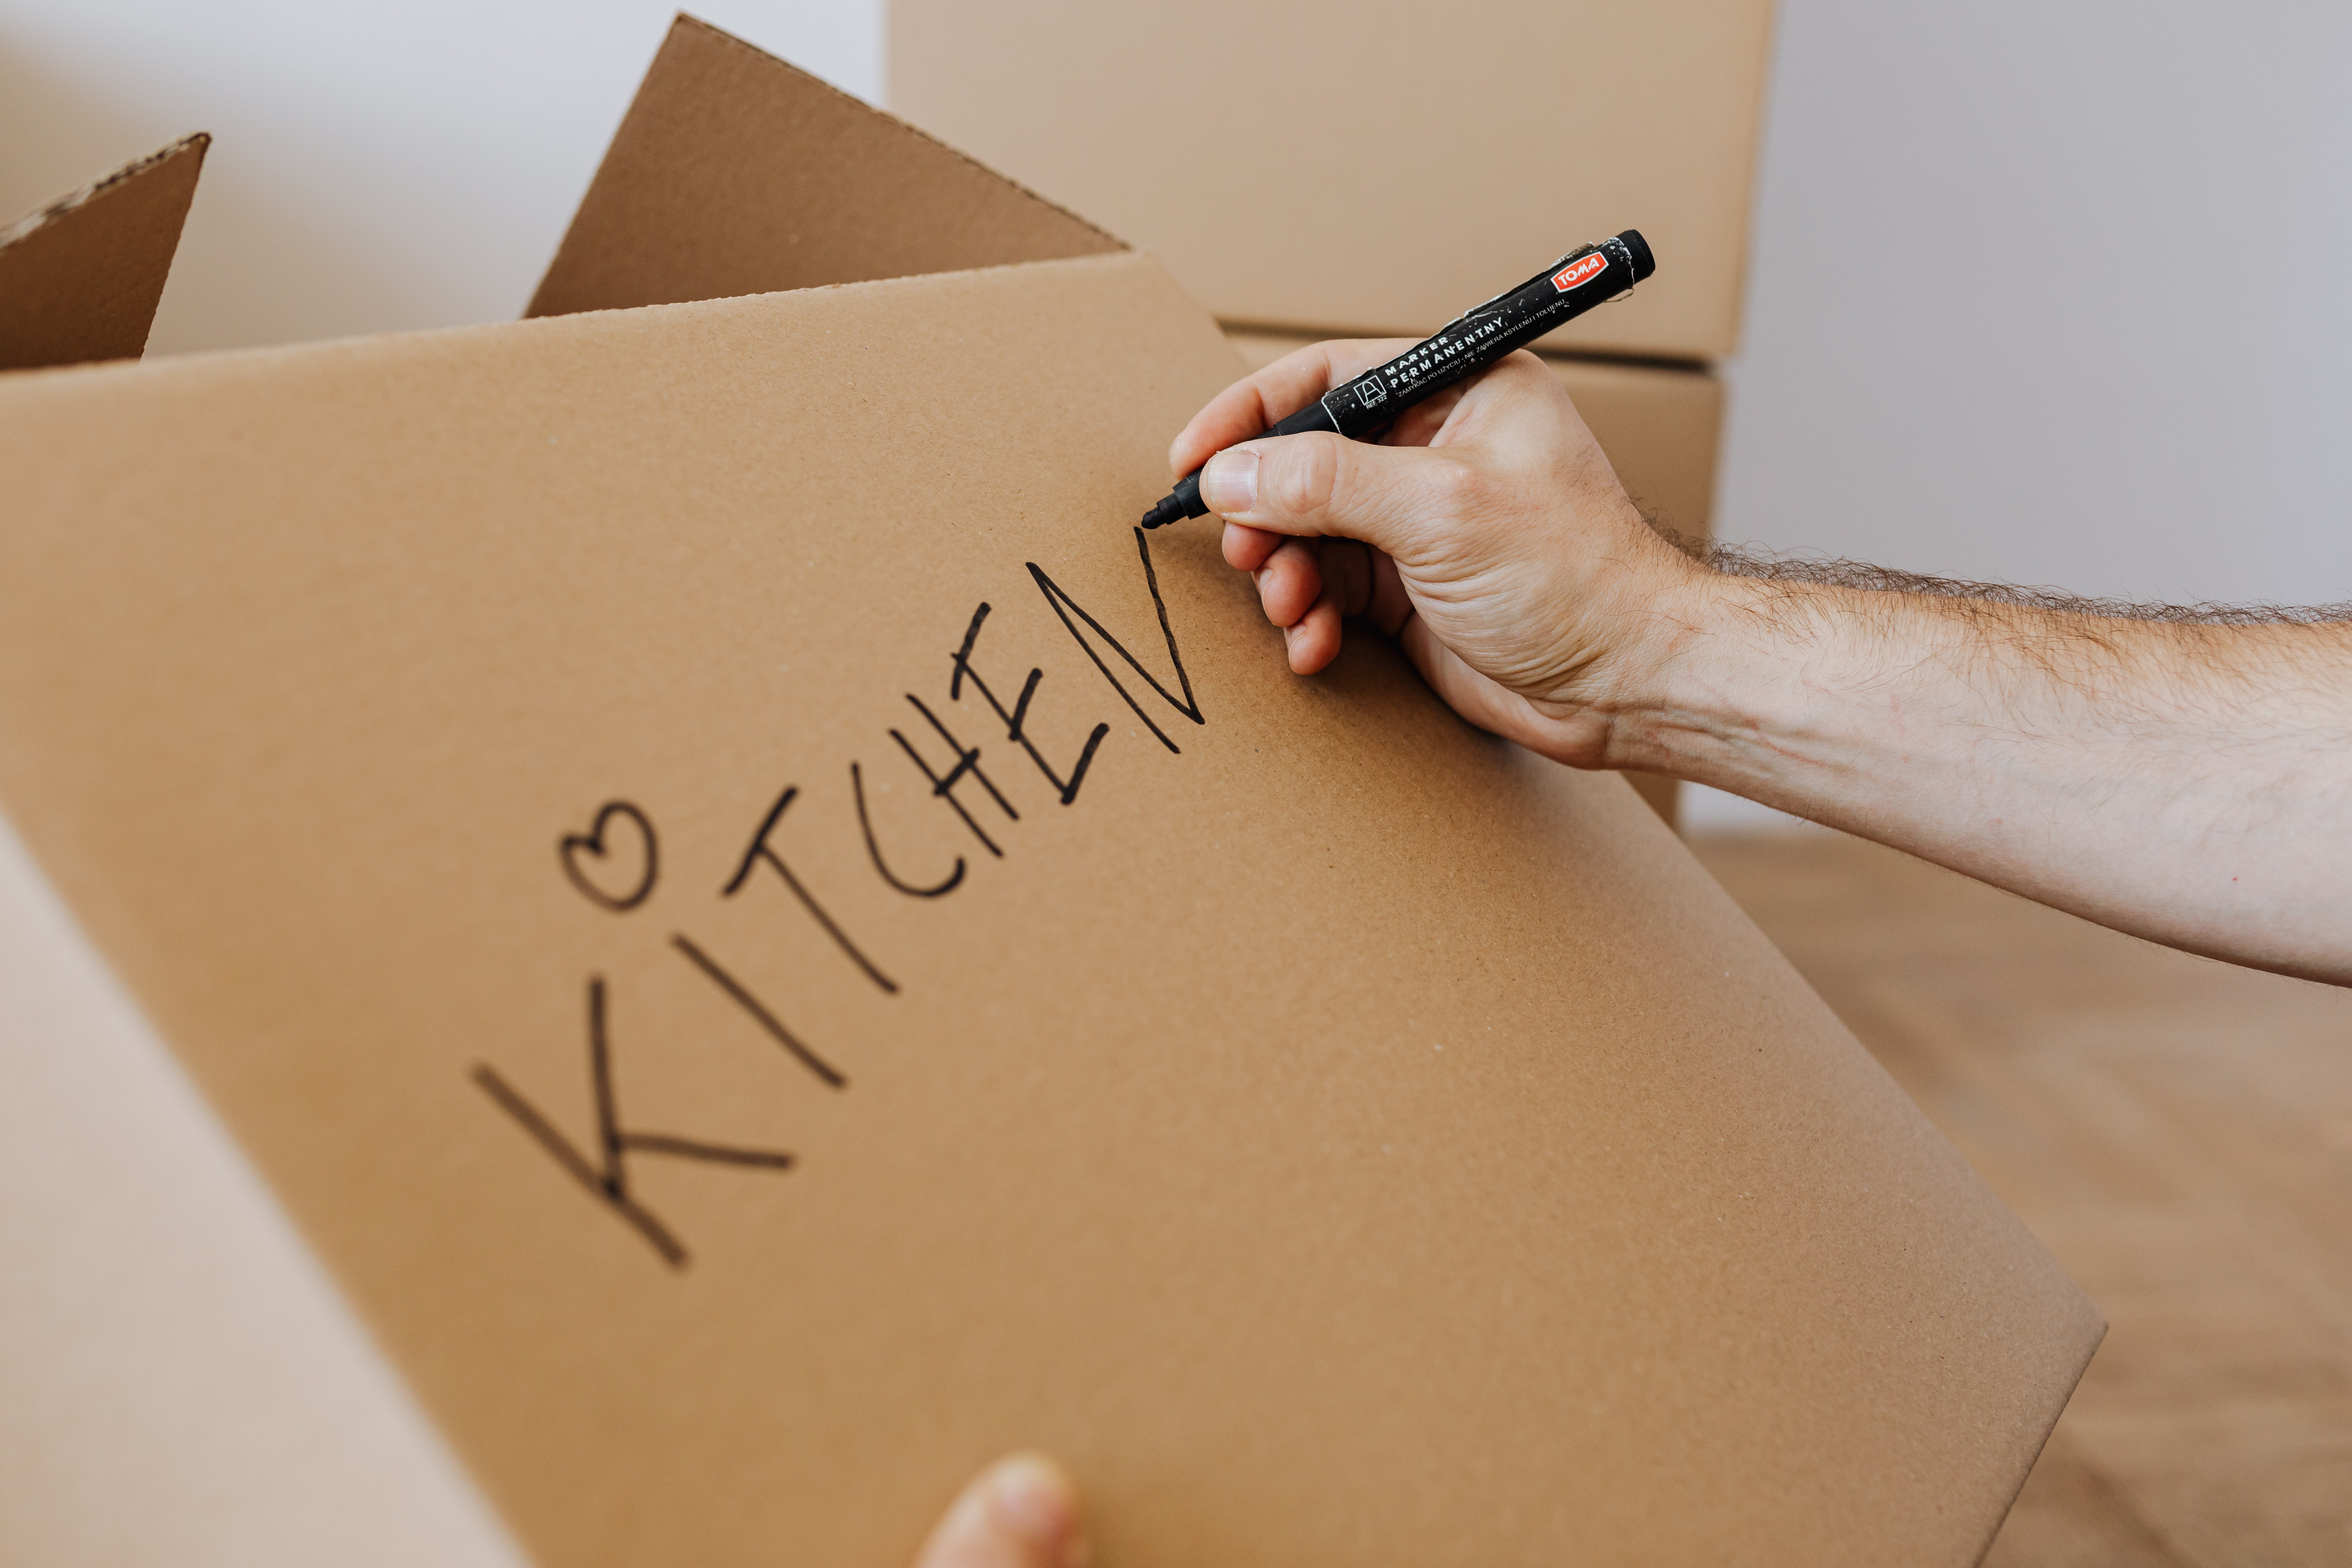 KITCHEN
TOMA
MARKER
PERMANENTNY
ZAMYKAĆ PO UŻYCIU, NIE ZAWIERA KSYLENU I TOLUENU
A
REF. 322